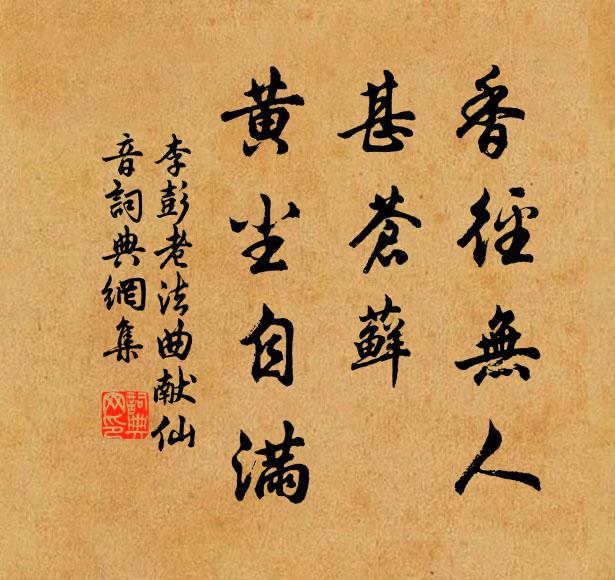 香徑無人
甚蒼蘚
黃尘自滿
李彭老法曲献仙
音詞典網集
詞典
网印